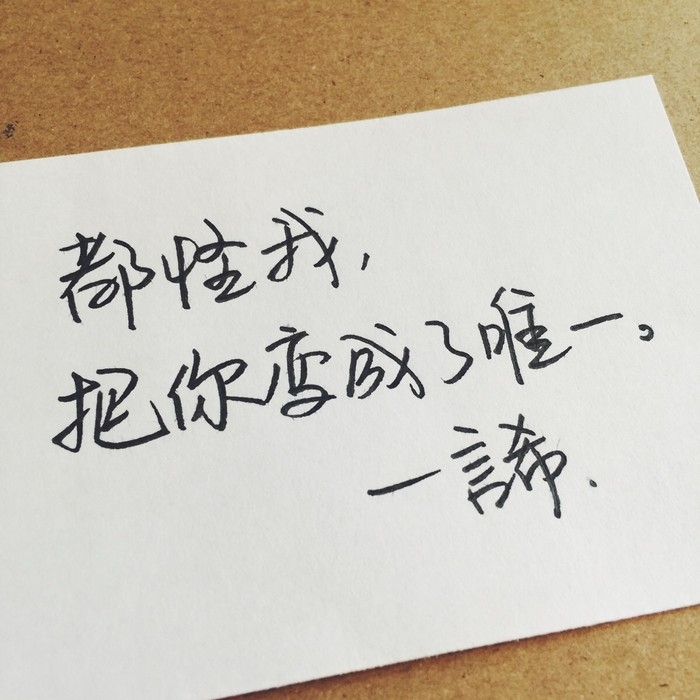 都怪我,
把你变成了唯一。